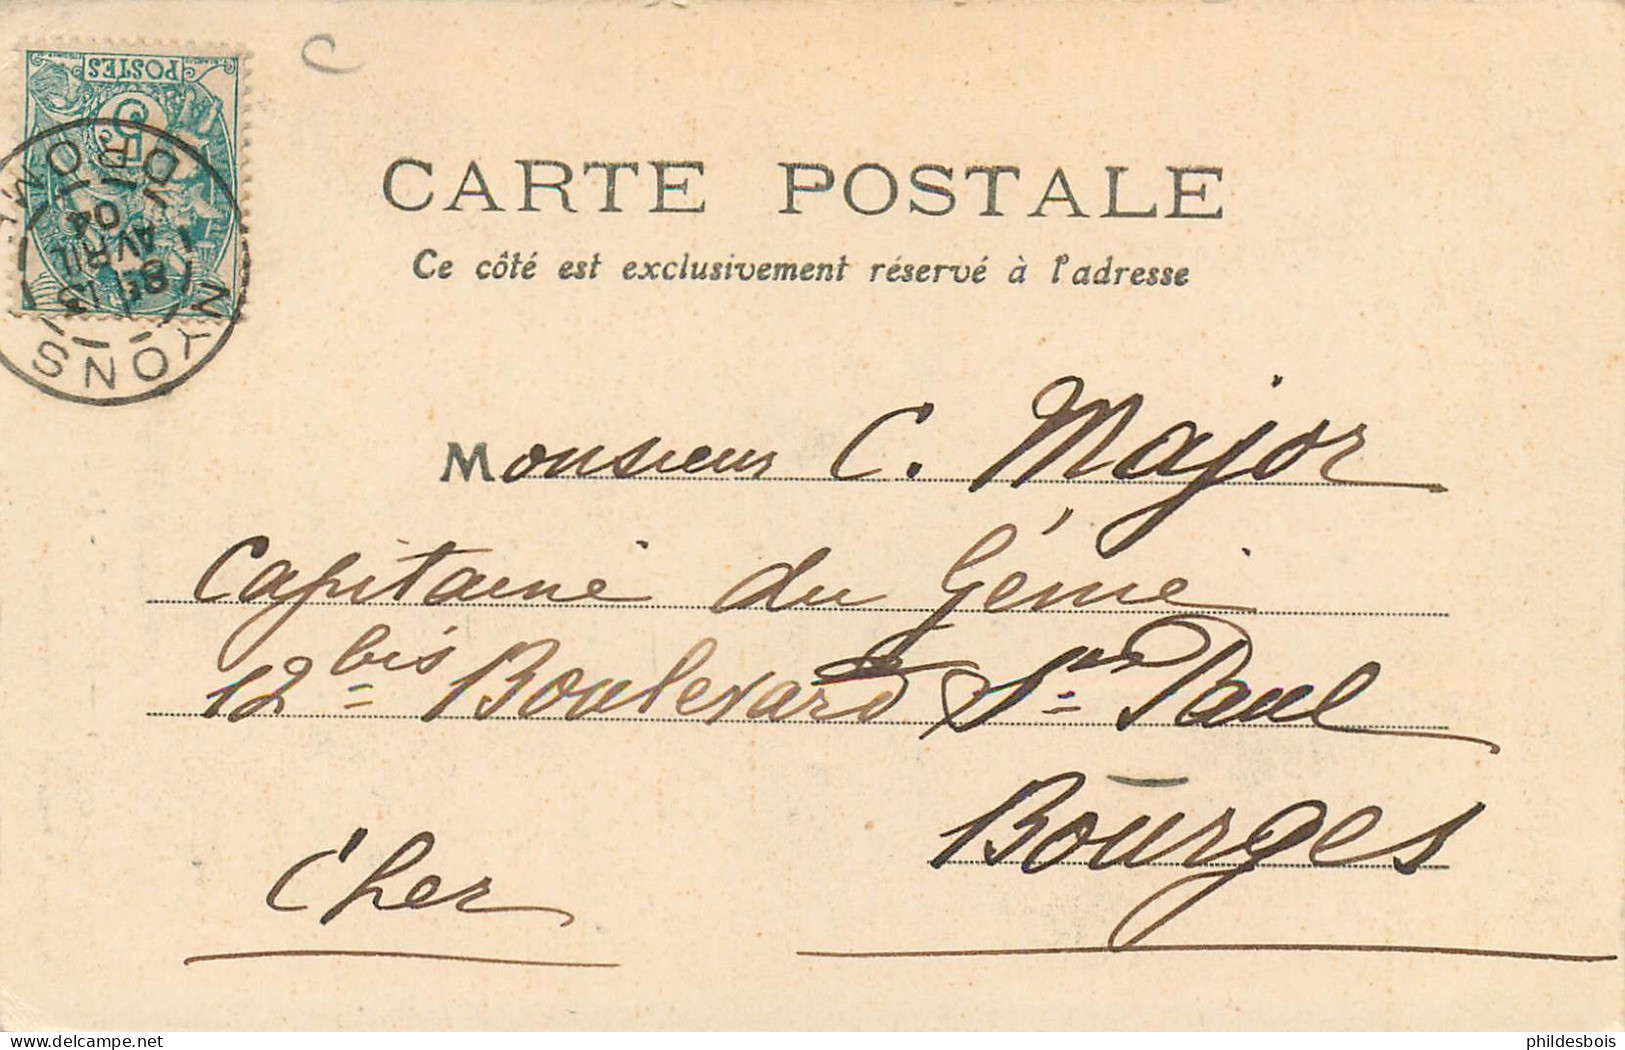 POSTES
5
NYONS
DROME
8E 13
1
AVRIL
04
C
CARTE POSTALE
Ce côté est exclusivement réservé à l'adresse
Monsieur C. Major
Capitaine du Génie
12 bis Boulevard St Paul
Bourges
Cher
phildesbois